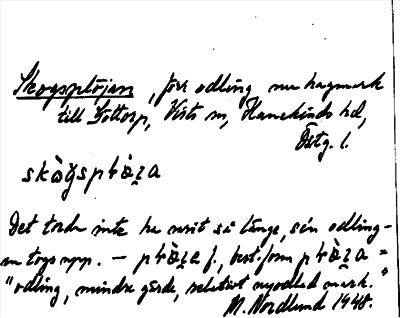 Skogsplöjan, förr odling nu hagmark
till Gottorp, Viby sn, Hanekinds hd,
Östg. l.
skòg̀spɫœ̀ʒa
Det torde inte ha varit så länge, sen odling-
en togs upp. – pɫœ̀ʒa f., best. form pɫœ̀ʒa =
"odling, mindre gärde, relativt nyodlad mark."
M. Nordlund 1948.